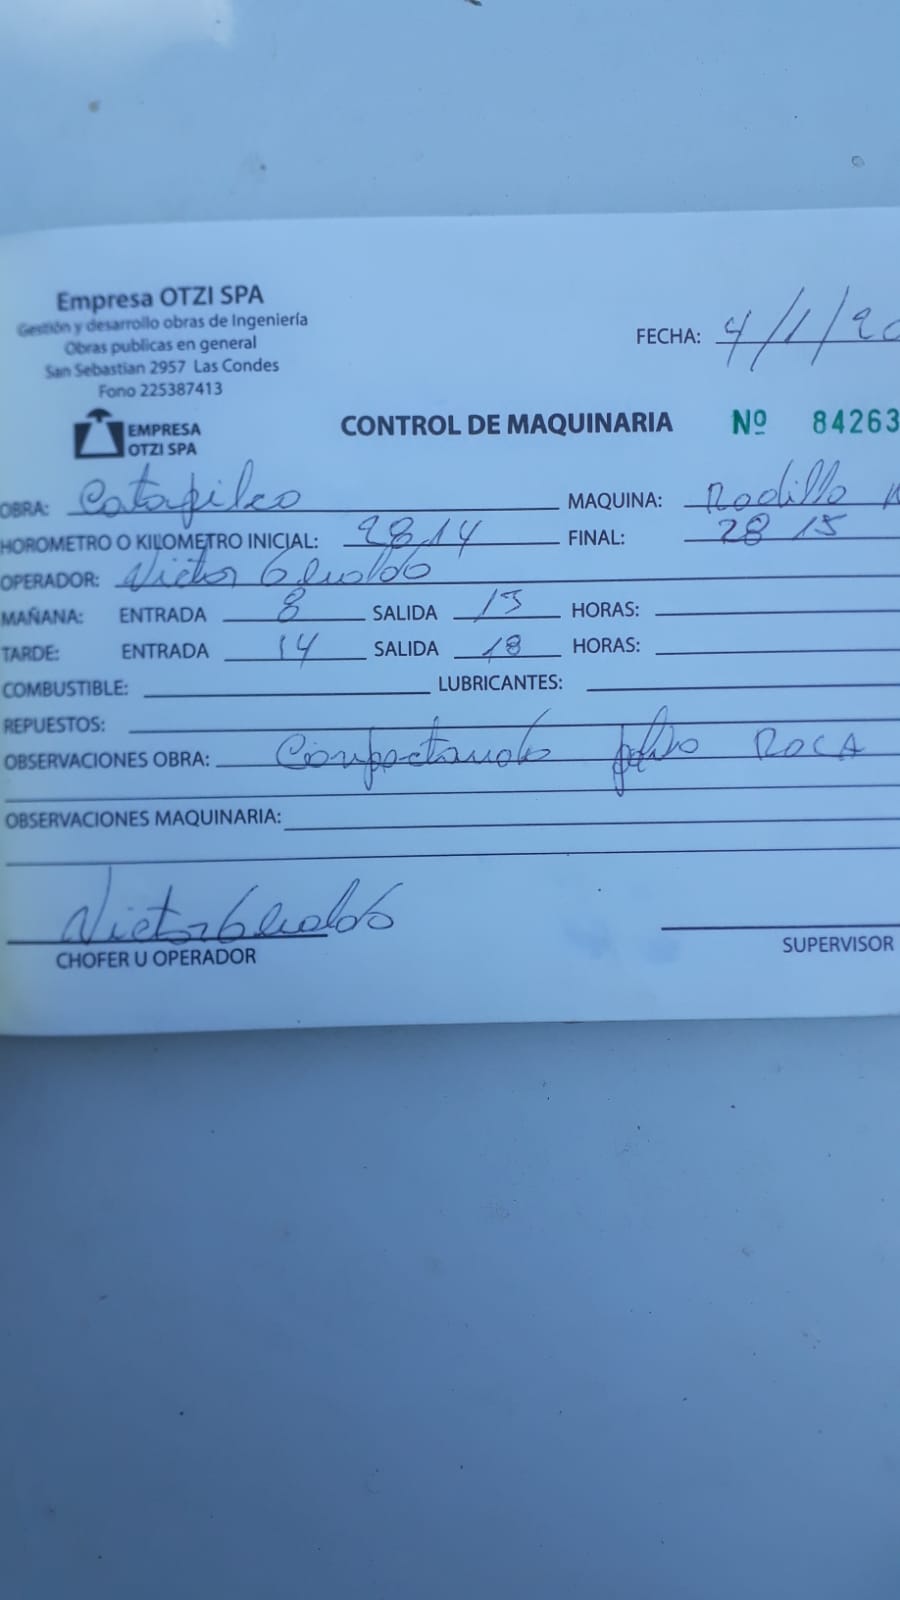 Empresa OTZI SPA
Gestión y desarrollo obras de Ingeniería
Obras publicas en general
San Sebastian 2957 Las Condes
Fono 225387413
FECHA: 4/1/20
EMPRESA
OTZI SPA
CONTROL DE MAQUINARIA Nº 84263
OBRA: Catapilco MAQUINA: Rodillo
HOROMETRO O KILOMETRO INICIAL: 2814 FINAL: 2815
OPERADOR: Victor
MAÑANA: ENTRADA 8 SALIDA 13 HORAS:
TARDE: ENTRADA 14 SALIDA 18 HORAS:
COMBUSTIBLE: LUBRICANTES:
REPUESTOS:
OBSERVACIONES OBRA: Compactando ROCA
OBSERVACIONES MAQUINARIA:
Victor
CHOFER U OPERADOR
SUPERVISOR